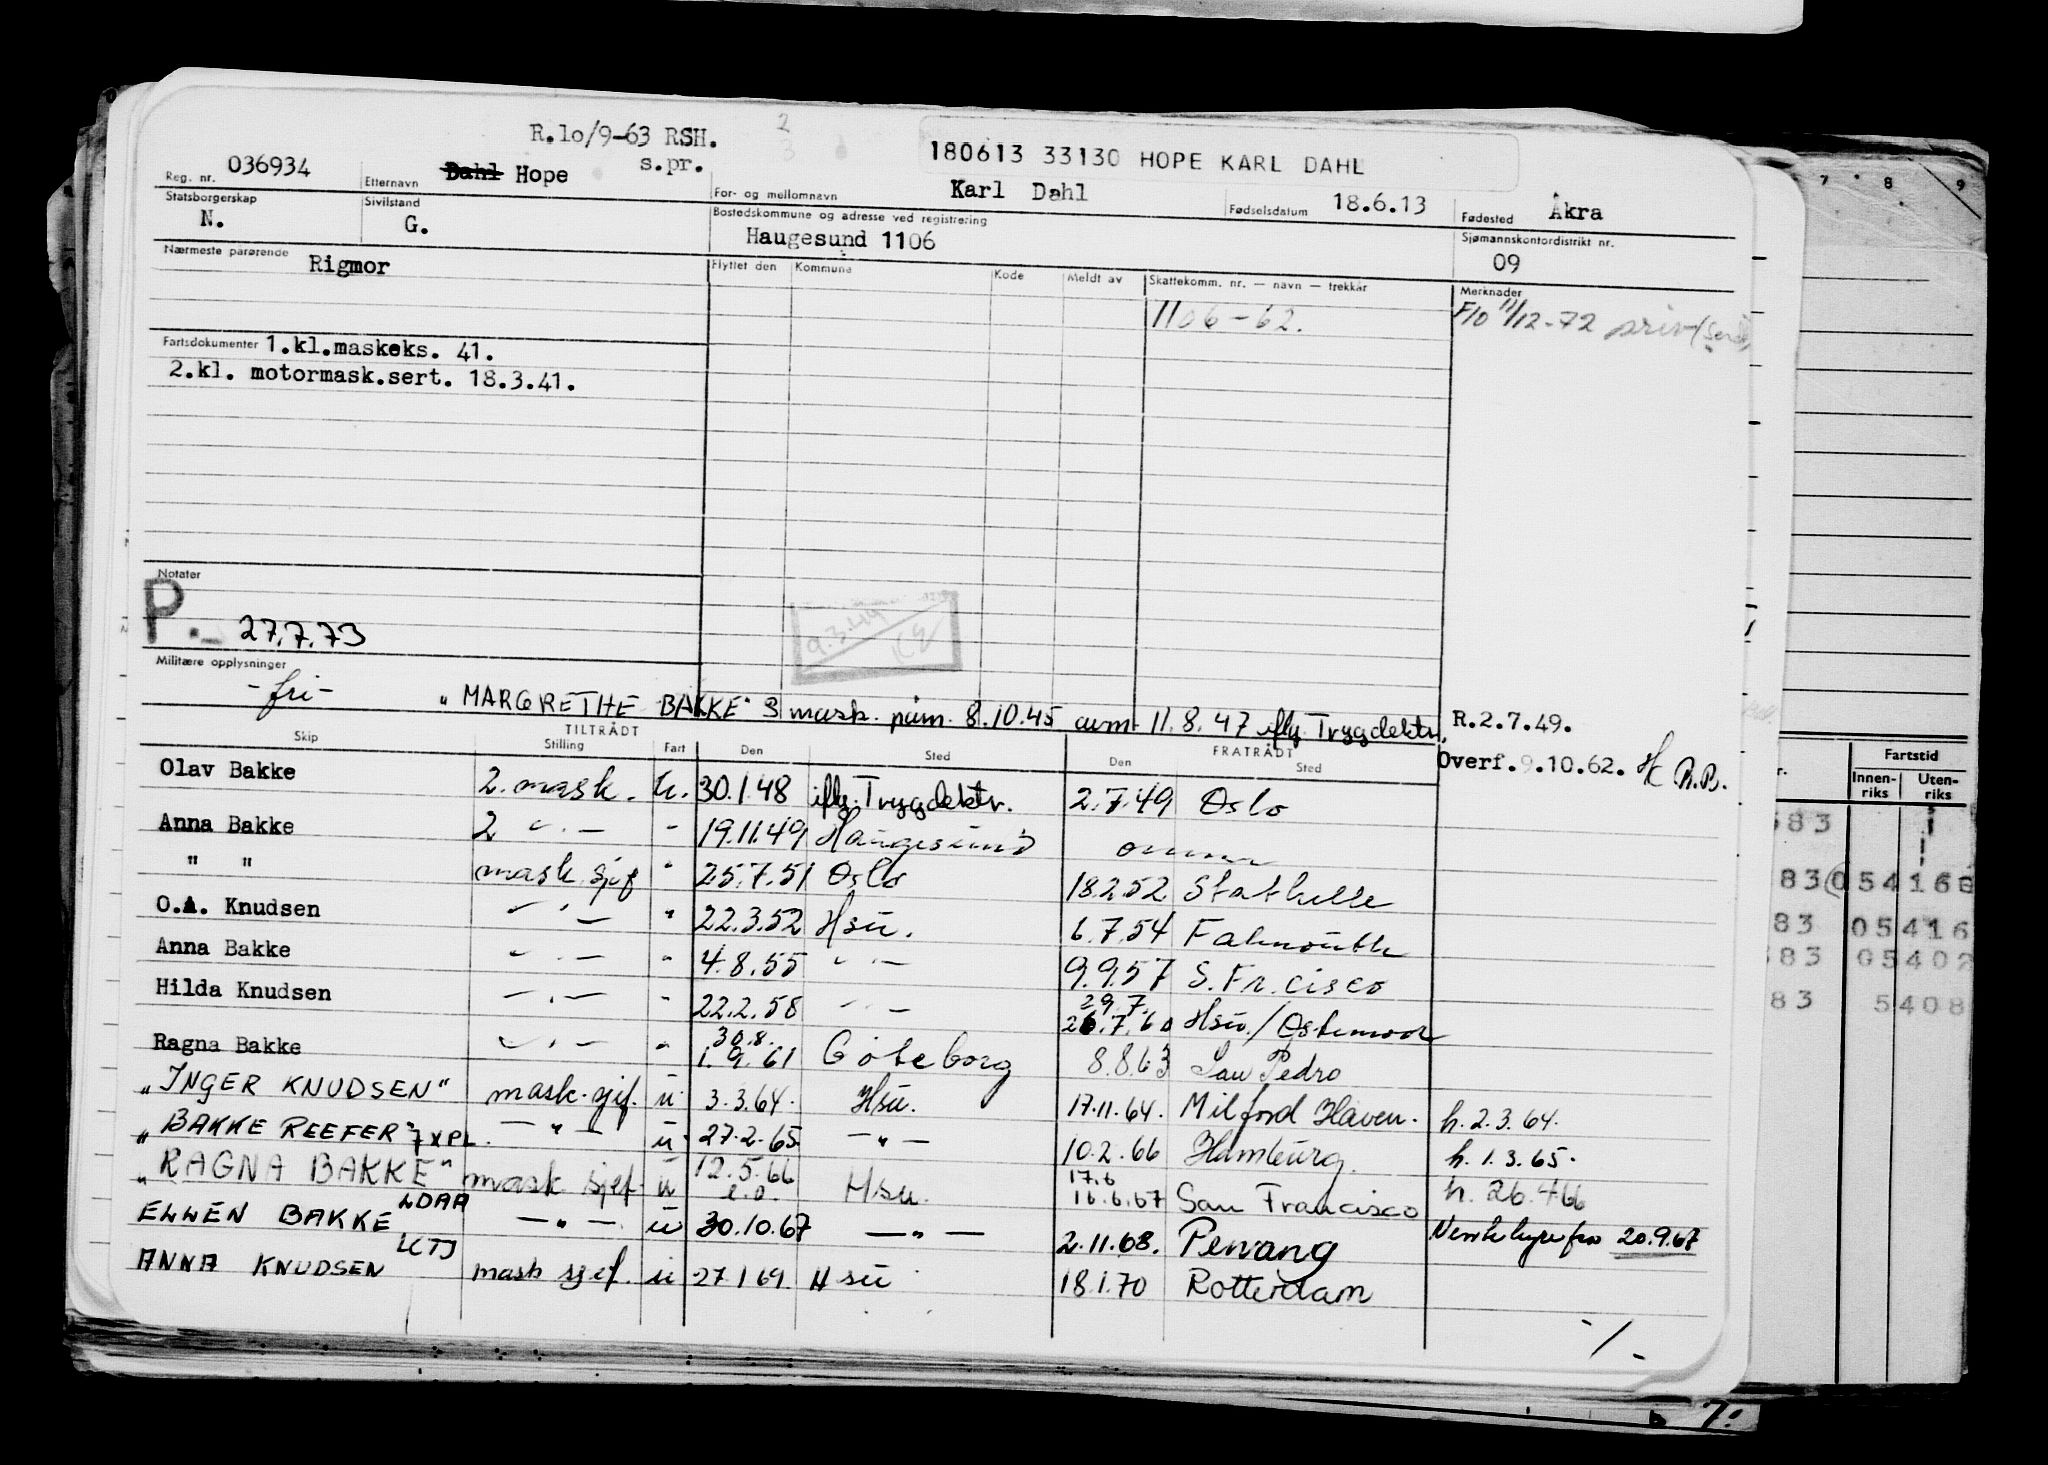 R.lo/9-63 RSH.
s.pr.
180613 33130 HOPE KARL DAHL
Reg. nr. 036934 Etternavn Dahl Hope For- og mellomnavn Karl Dahl Fødselsdatum 18.6.13 Fødested Åkra
Statsborgerskap N. Sivilstand G. Bostedskommune og adresse ved registrering Haugesund 1106 Sjømannskontordistrikt nr. 09
Nærmeste pårørende Rigmor Flyttet den Kommune Kode Meldt av Skattekomm. nr. — navn — trekkår Merknader
1106-62. F/o 11/12-72
Fartsdokumenter 1.kl.maskeks. 41.
2.kl. motormask.sert. 18.3.41.
Notater
P. 27.7.73
Militære opplysninger
-fri- "MARGRETHE BAKKE" 3 mask. påm. 8.10.45 avm. 11.8.47 iflg. Trygdektr. R.2.7.49.
TILTRÅDT FRATRÅDT Overf. 9.10.62. H R.B.
Skip Stilling Fart Den Sted Den Sted
Olav Bakke 2. mask. u. 30.1.48 iflg. Trygdektr. 2.7.49 Oslo
Anna Bakke 2 —"— " 19.11.49 Haugesund
" " mask sjef " 25.7.51 Oslo 18.2.52 Stathelle
O.A. Knudsen —"— " 22.3.52 Hsu. 6.7.54 Falmouth
Anna Bakke —"— " 4.8.55 —"— 9.9.57 S. Fr.cisco
Hilda Knudsen —"— " 22.2.58 —"— 29.7. 26.7.60 Hsu/
Ragna Bakke —"— " 30.8. 1.9.61 Göteborg 8.8.63 San Pedro
"INGER KNUDSEN" mask.sjef. u 3.3.64. Hsu. 17.11.64. Milford Haven. h. 2.3.64.
"BAKKE REEFER" —"— u 27.2.65 —"— 10.2.66 Hamburg. h. 1.3.65.
"RAGNA BAKKE" mask sjef. u 12.5.66 e.o. Hsu. 17.6 16.6.67 San Francisco h. 26.4.66
ELLEN BAKKE LDAA —"— u 30.10.67 —"— 2.11.68. Penang Ventehyre fra 20.9.67
ANNA KNUDSEN LCTJ mask sjef. u 27.1.69. Hsu 18.1.70 Rotterdam
-/-
7 8 9
Fartstid
Innen-riks Uten-riks
83
83 054168
83 05416
83 05402
83 5408
7.